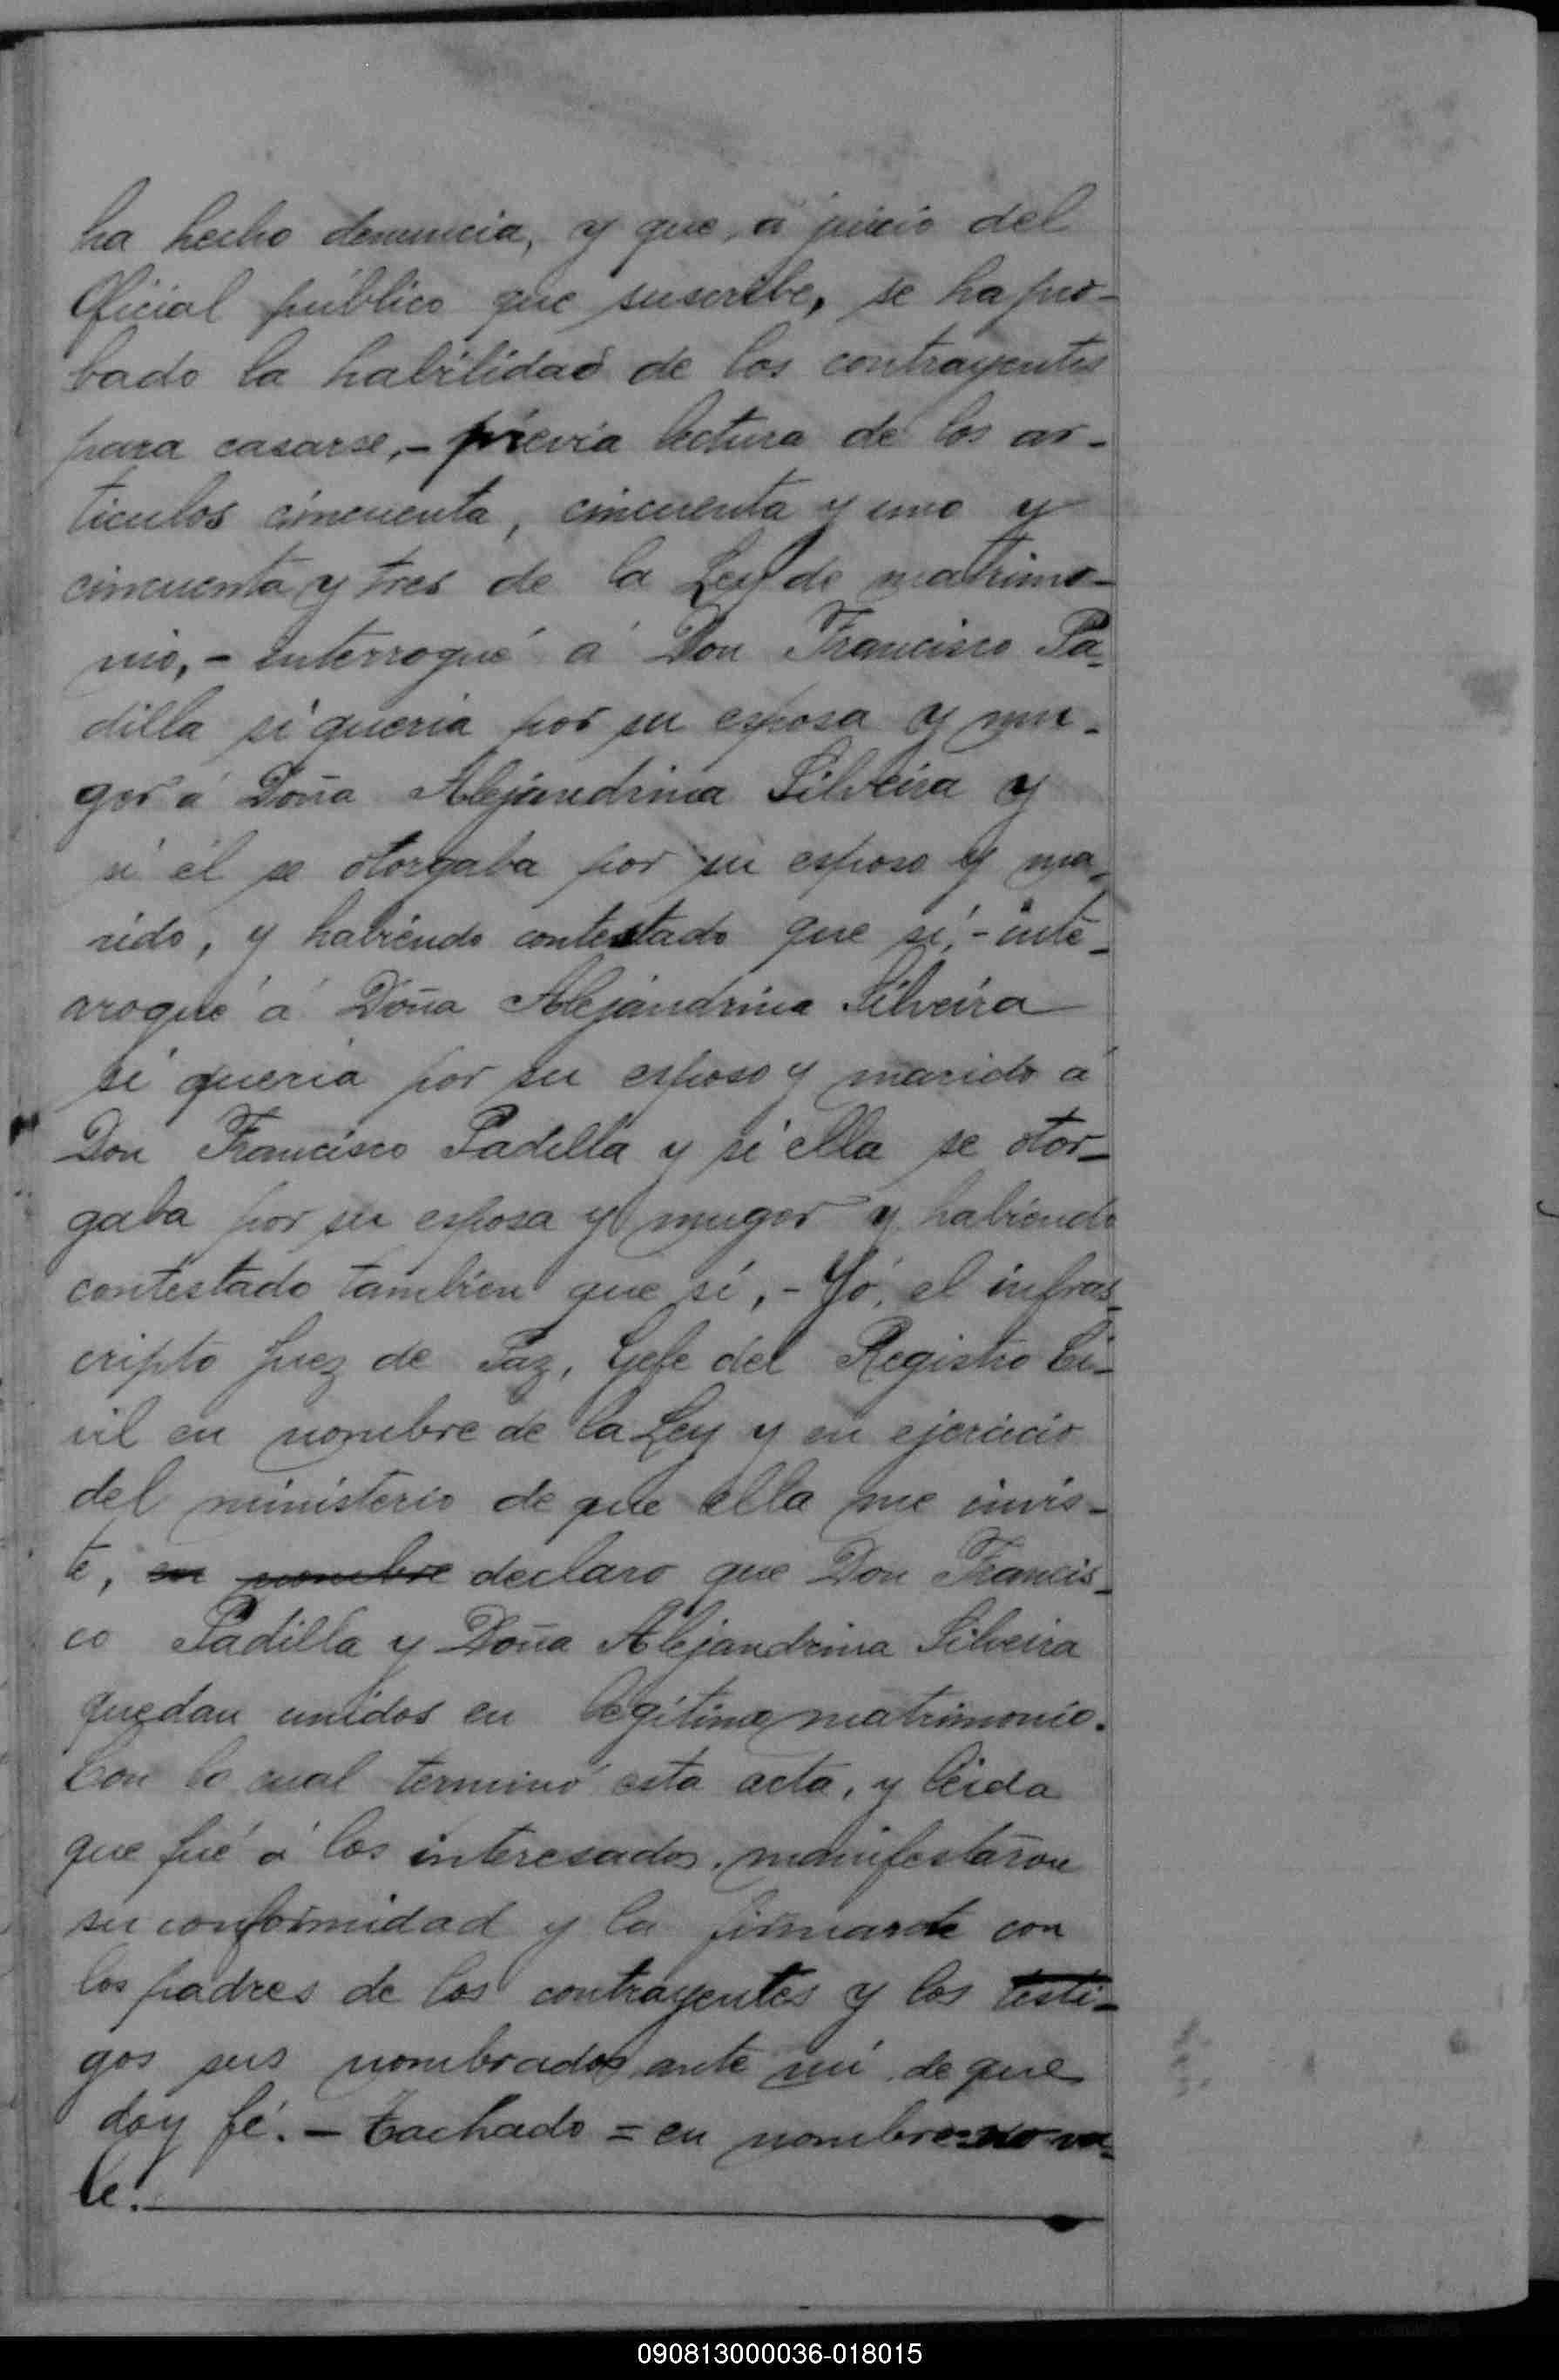 ha hecho denuncia, y que, a juicio del
Oficial público que suscribe, se ha pro-
bado la habilidad de los contrayentes
para casarse,- prévia lectura de los ar-
ticulos cincuenta, cincuenta y uno y
cincuenta y tres de la Ley de matrimo-
nio,- interrogué á Don Francisco Pa-
dilla si queria por su esposa y mu-
ger á Doña Alejandrina Silveira y
si él se otorgaba por su esposo y ma-
rido, y habiendo contestado que sí,- inte-
rroqué á Doña Alejandrina Silveira
si queria por su esposo y marido á
Don Francisco Padilla y si ella se otor-
gaba por su esposa y muger y habiendo
contestado tambien que sí,- Yó, el infras-
cripto Juez de Paz, Gefe del Registro Ci-
vil en nombre de la Ley y en ejercicio
del ministerio de que ella me invis-
te, en nombre declaro que Don Francis-
co Padilla y Doña Alejandrina Silveira
quedan unidos en legítimo matrimonio.
Con lo cual terminó esta acta, y leida
que fué á los interesados, manifestaron
su conformidad y la firmaron con
los padres de los contrayentes y los testi-
gos sus nombrados ante mí de que
doy fé. - Tachado = en nombre = no va-
le.